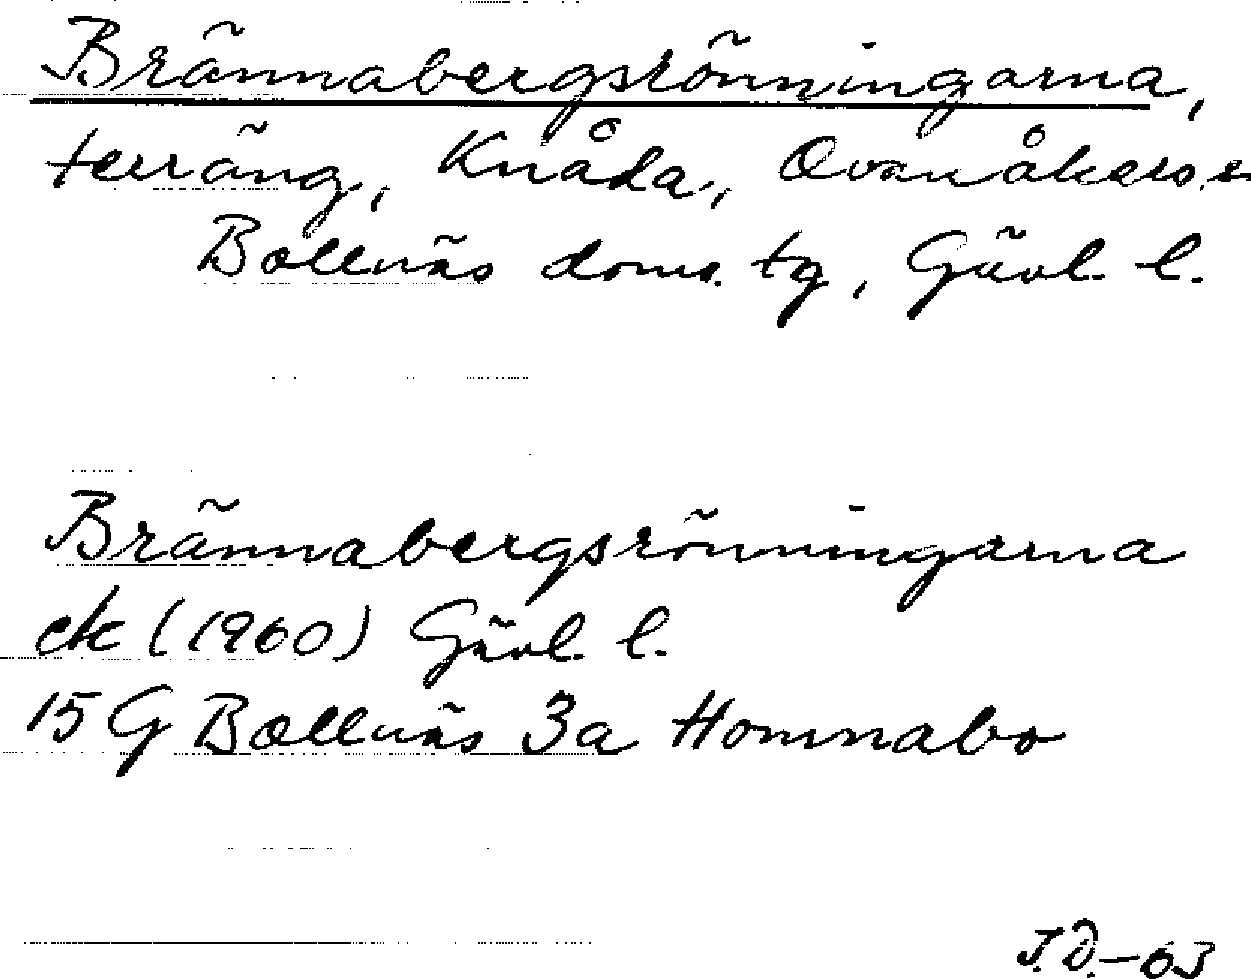 Brännabergsrönningarna,
terräng, Knåda, Ovanåkers s
Bollnäs doms. tg, Gävl. l.
Brännabergsrönningarna
ek (1960) Gävl. l.
15 G Bollnäs 3a Homnabo
J.D.-63